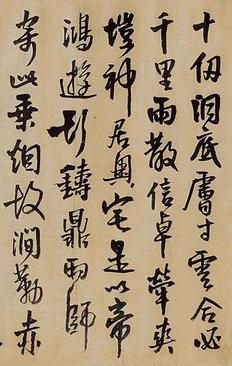 十仞洞底膚寸雲合必
千里雨散信卓犖爽
塏神居奧宅是以帝
鴻遊 鑄鼎雨師
寄此乘烟故澗勒赤